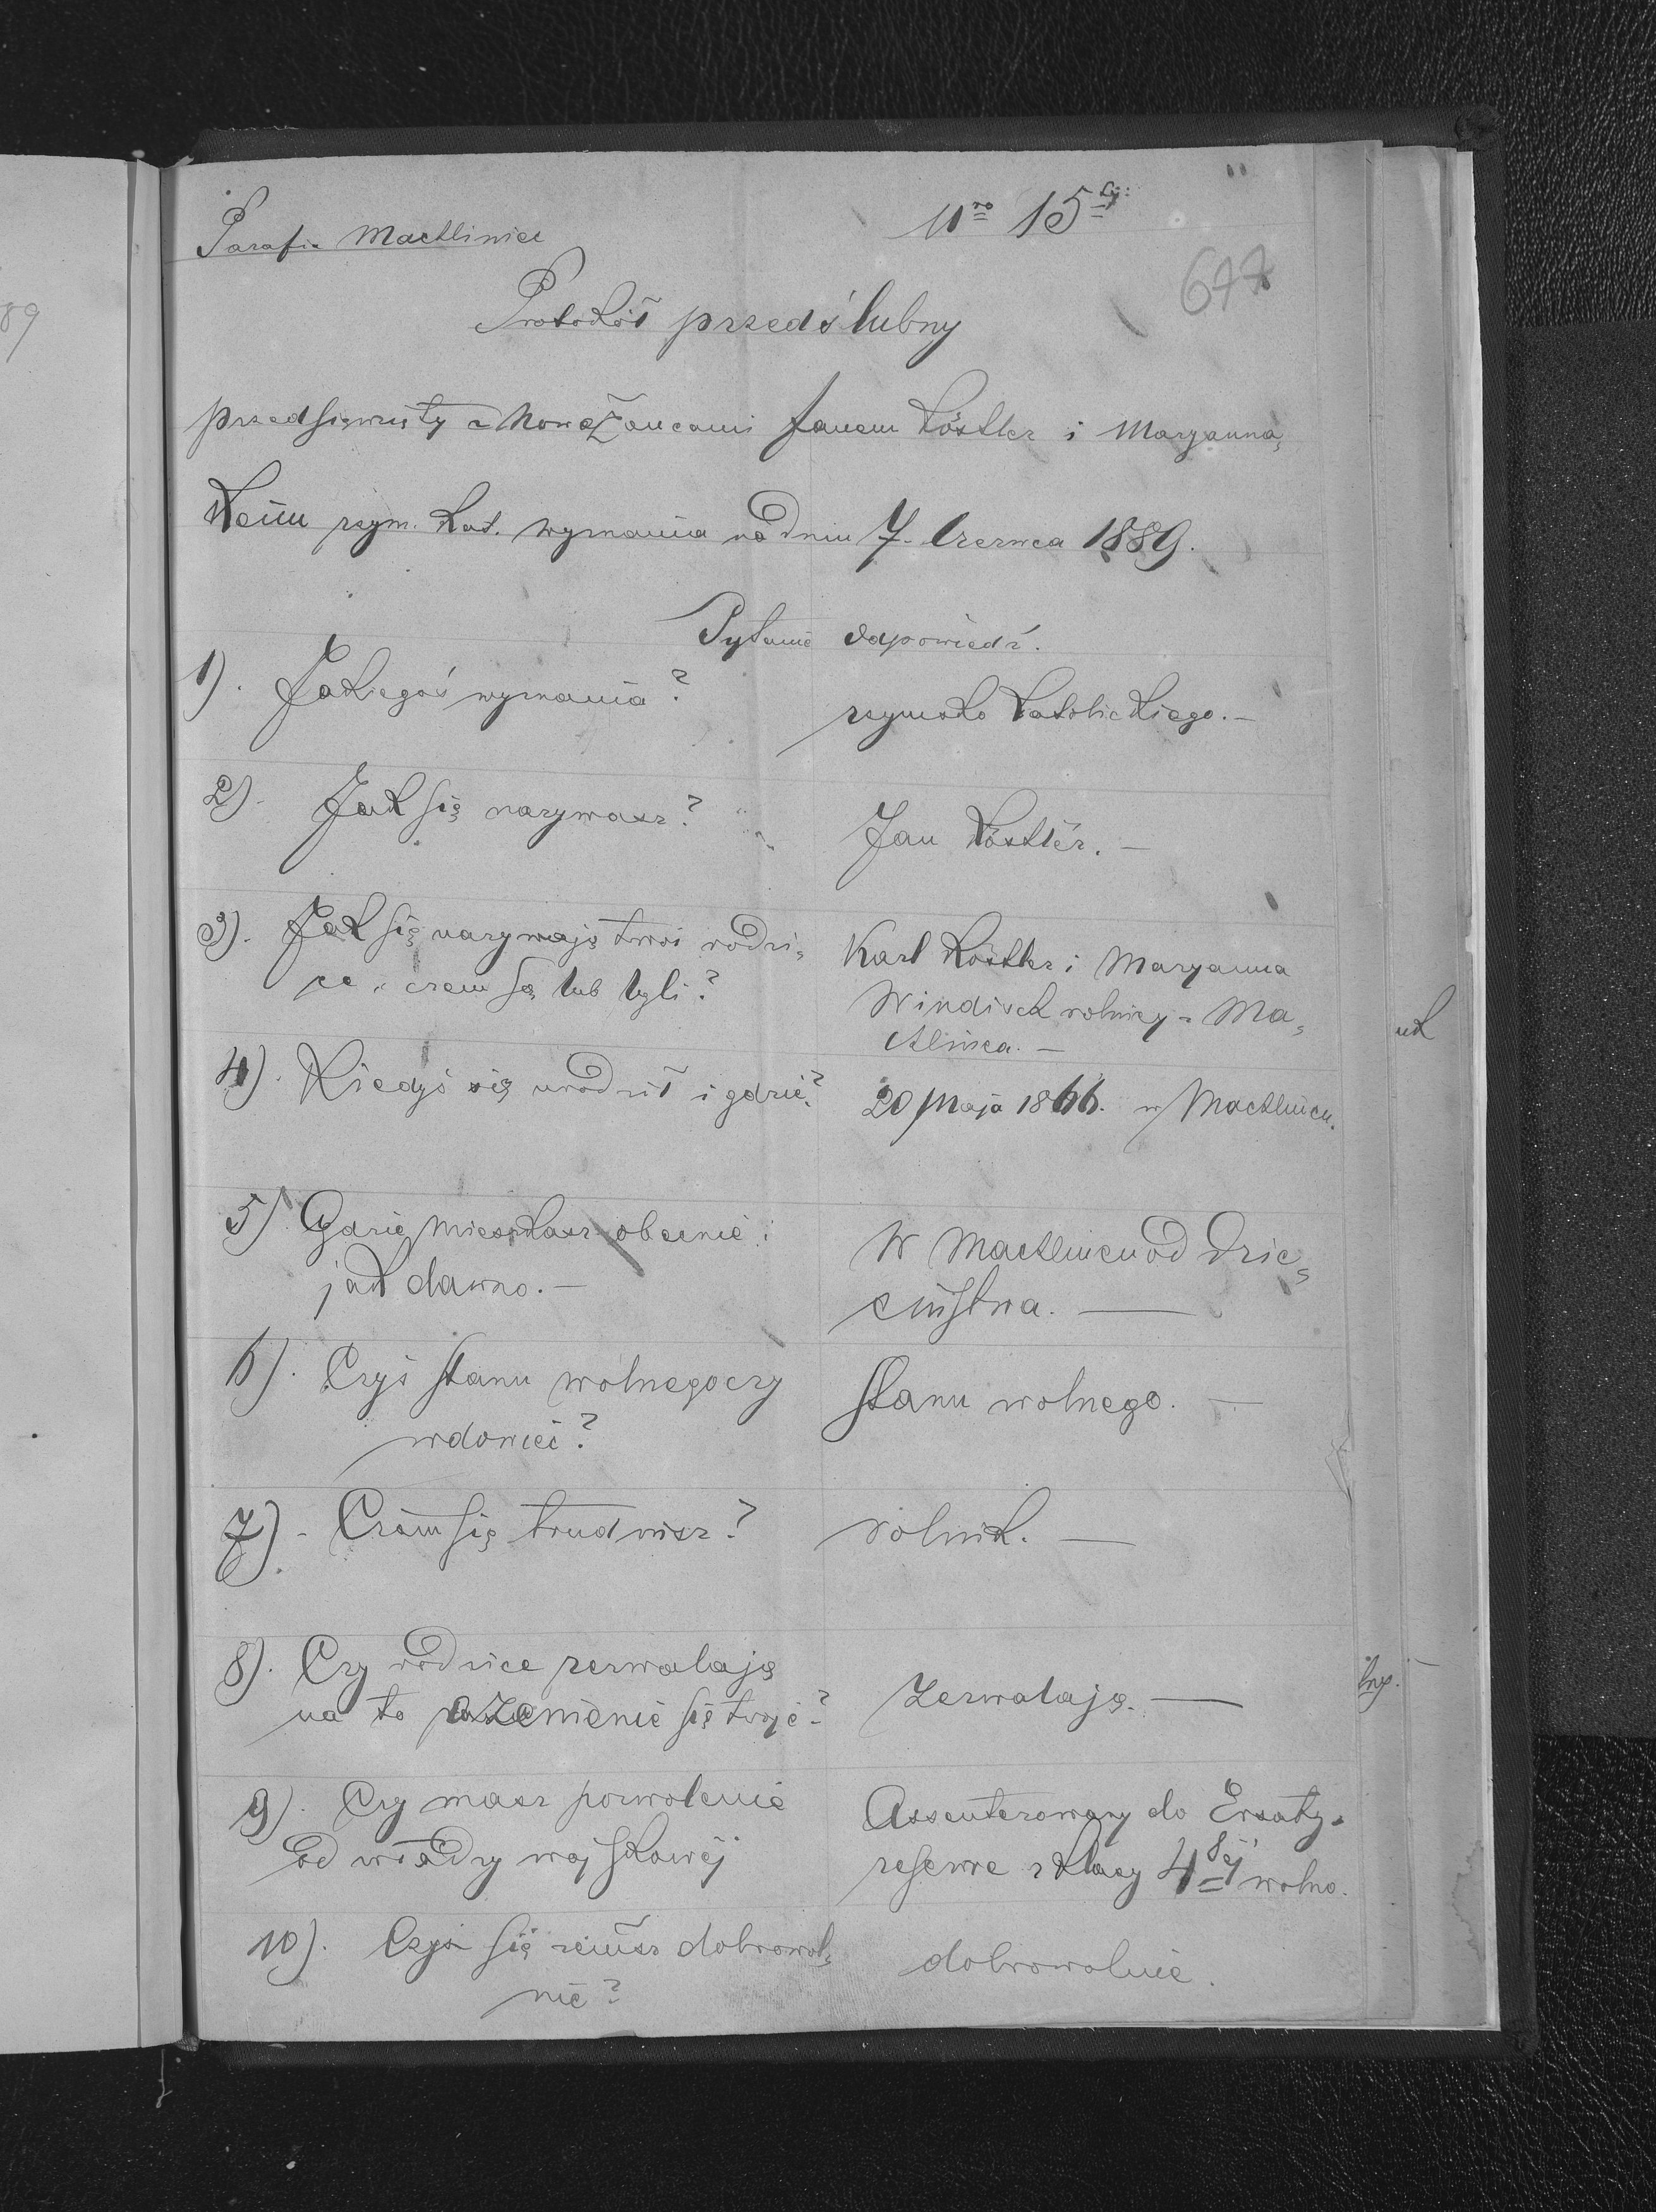 89
Parafia Machliniec
Nro 15
677
Protokół przedślubny
przedsięwzięty z Nowożeńcami Janem Köstler i Maryanną
rzym. kat. wyznania na dniu 7. Czerwca 1889.
Pytanie odpowiedź.
1). Jakiegoś wyznania?
rzymsko katolickiego. —
2). Jak się nazywasz?
Jan Köstler. —
3). Jak się nazywają twoi rodzi-
ce, czem są lub byli?
Karl Köstler i Maryanna
Windisch rolnicy z Ma-
chlińca. —
4). Kiedyś się urodził i gdzie?
20 Maja 1866. w Machlińcu.
5) Gdzie mieszkasz obecnie i
jak dawno. —
W Machlińcu od dzie-
ciństwa. —
6). Czyś stanu wolnego czy
wdowiec?
Stanu wolnego. —
7). Czém się trudnisz?
rolnik. —
8). Czy rodzice zezwalają
na to ożenienie się twoje?
Zezwalają. —
9). Czy masz pozwolenie
od władzy wojskowéj
Assenterowany do Ersatz-
reserwe z klasy 4téj wolno.
10). Czyż się żenisz dobrowol-
nie?
dobrowolnie.